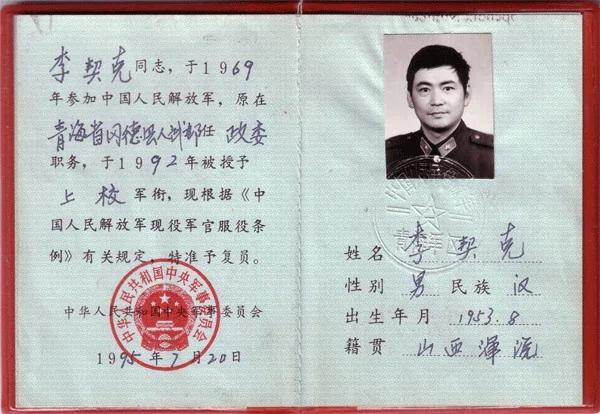 李契克同志,于1969
年参加中国人民解放军,原在
青海省同德县人武部任 政委
职务,于1992年被授予
上校 军衔,现根据《中
国人民解放军现役军官服役条
例》有关规定,特准予复员。
中华人民共和国中央军事委员会
1995年7月20日
中华人民共和国中央军事委员会
姓名 李契克
性别 男 民族 汉
出生年月 1953.8
籍贯 山西浑源